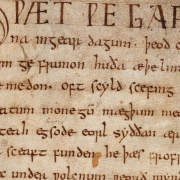 ÆT ǷE GAR
na ingear dagum. þeod
ge frunon huða æþelin
medon. oft scyld scefing
eatum monegū mægþum
teah egsode eorl syððan
sceaft funden he þæs frofr
under ƿolcnum ƿeorð mynd